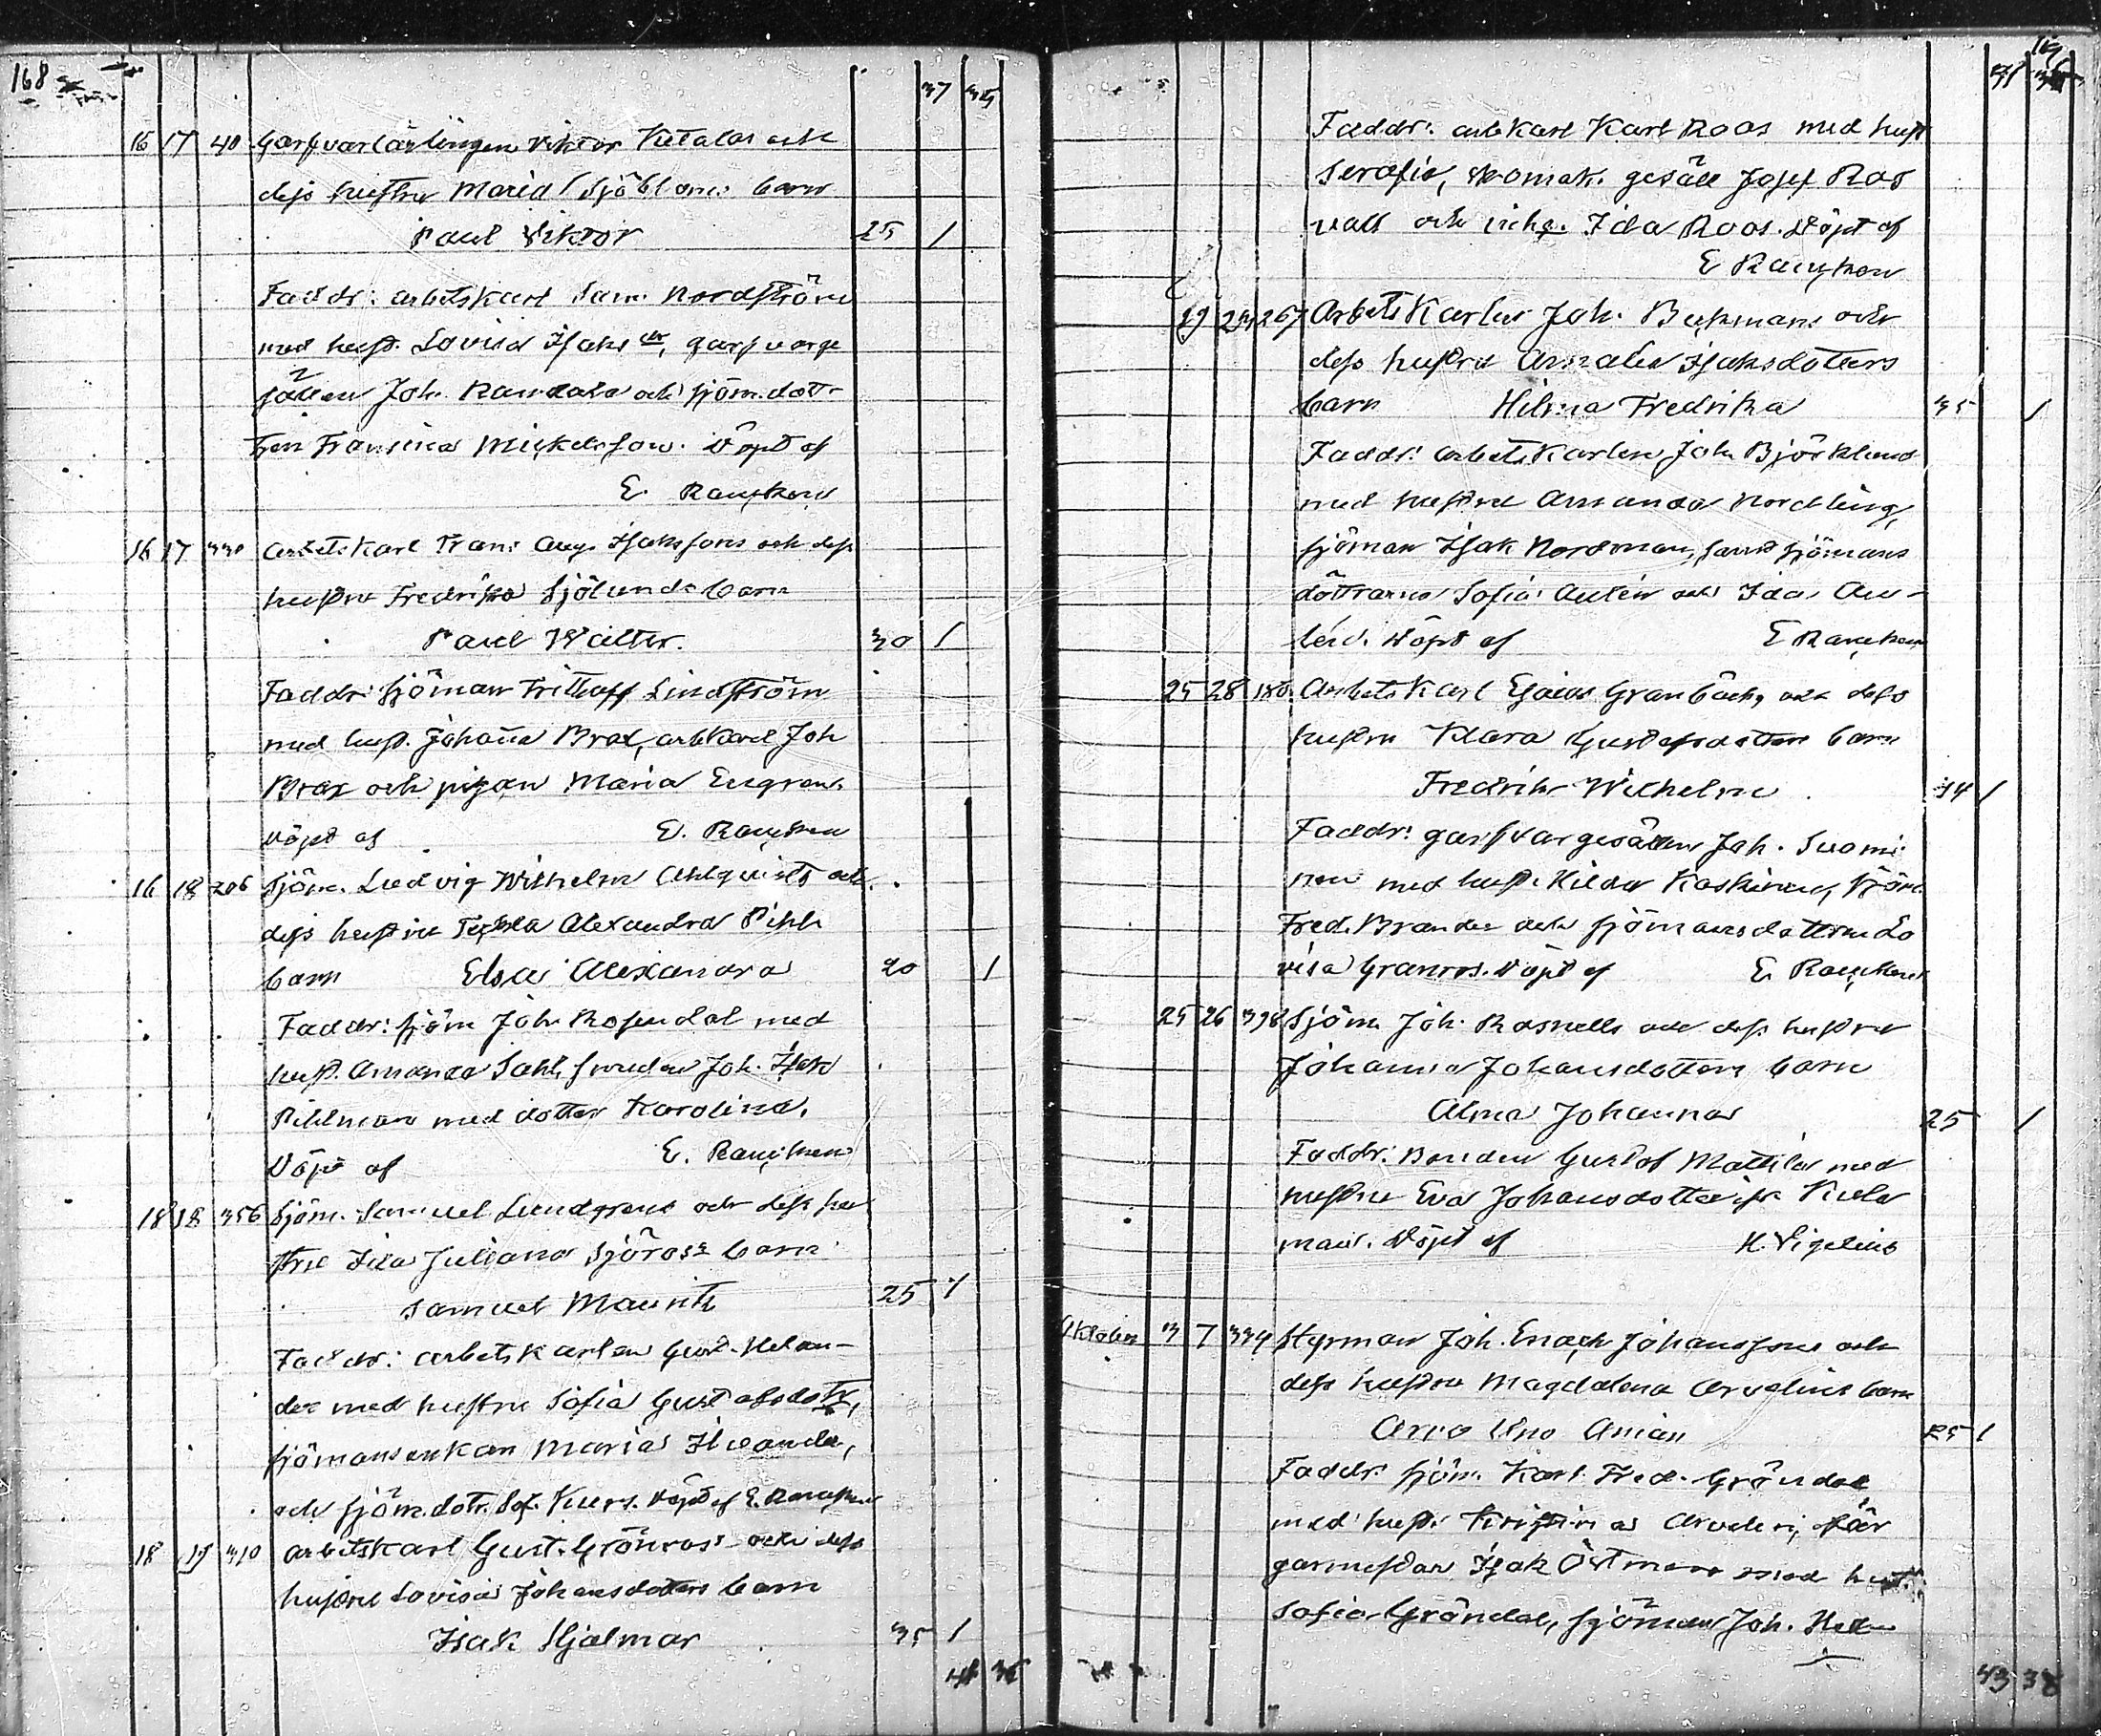 168
37 35
15 17 40 Garfvarlärlingen Viktor Ketala och
dess hustru Maria Sjöbloms barn
Paul Viktor 25 1
Faddr: arbetskarl Sam. Nordström
med hust. Lovisa Isaksdr, garfvarge
sällen Joh. Randala och sjöm.dott-
ren Fransina Mickelsson. Döpt af
E. Rancken
16 17 330 Arbetskarl Frans Aug. Isakssons och dess
hustru Fredrika Sjölunds barn
Paul Walter. 30 1
Faddr: sjöman Frithoff Lindström
med hust. Johanna Brax, arbkarl Joh
Brax och pigan Maria Engren.
Döpt af E. Rancken
16 18 206 Sjöm. Ludvig Wilhelm Ahlqvists och
dess hustru Tekla Alexandra Pihls
barn Elsa Alexandra 20 1
Faddr: sjöm Joh. Rosendal med
hust. Amanda Dahl, svenden Joh. Isak
Pihlman med dotter Karolina.
Döpt af E. Rancken
18 18 356 Sjöm. Samuel Lundgrens och dess hu
stru Ida Juliana Sjöross barn
Samuel Maurits 25 1
Faddr: arbetskarlen Gust. Helan-
der med hustru Sofia Gustafsdotr,
sjömansenkan Maria
och sjöm.dotr. Sof. Kurs. Döpt af E. Rancken
18 19 310 Arbetskarl Gust. Grönross och dess
hustru Lovisa Johansdotters barn
Isak Hjalmar 35 1
41 36
Faddr: arbkarl Karl Roos med hust
Serafia, skomak. gesäll Josef Ros
vall och Ida Roos. Döpt af
E Rancken
19 23 267 Arbets Karlen Joh. Beckmans och
dess hustru Amalia Isaksdotters
barn Hilma Fredrika 35 1
Faddr: arbetskarlen Joh Björklund
med hustru Amanda Nordling,
sjöman Isak Nordman, samt sjömans
döttrarna Sofia Aulin och Ida Au-
lin. Döpt af E Rancken
25 28 180 Arbets Karl Esaias Granbäck, och dess
hustru Klara Gustafsdotters barn
Fredrik Wilhelm 34 1
Faddr: garfvargesällen Joh. Suomi
nen med hust. Hilda Koskinen, sjöm.
Fred. Brander och sjömansdottern Lo
visa Granros. Döpt af E. Rancken
25 26 398 Sjöm. Joh. Rosnells och dess hustru
Johanna Johansdotters barn
Alma Johanna 25 1
Faddr: Bonden Gustaf Mattila med
hustru Eva Johansdotter
Döpt af K. Vigelius
Oktober 3 7 334 Styrman Joh. Enoch Johanssons och
dess hustru Magdalena Arvelins barn
Arvo Uno Anian 25 1
Faddr: sjöm. Karl Fred. Gröndal
med hust. Kristina Arvelin, fär
garmestar Isak Östman med hust.
Sofia Gröndal, sjöman Joh. Hel-
43 38